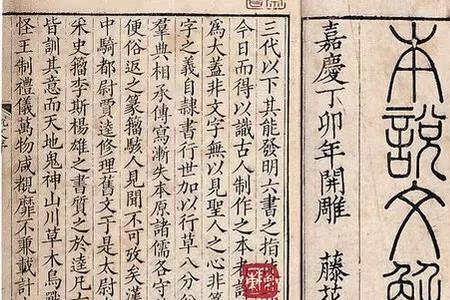 本說文解
嘉慶丁卯年開雕 藤花
三代以下其能發明六書之指
今日而得以識古人制作之本者許
爲大蓋非文字無以見聖人之心非
字之義自隸書行世加以行草八分
羣典相承傳寫漸失本原諸儒各守
便俗返之篆籀駭人見聞不可攷矣漢
中騎都尉賈逵修理舊文于是太尉
采史籀李斯楊雄之書質之於逵凡
皆訓其意而天地鬼神山川草木鳥
怪王制禮儀萬物咸覩靡不兼載計